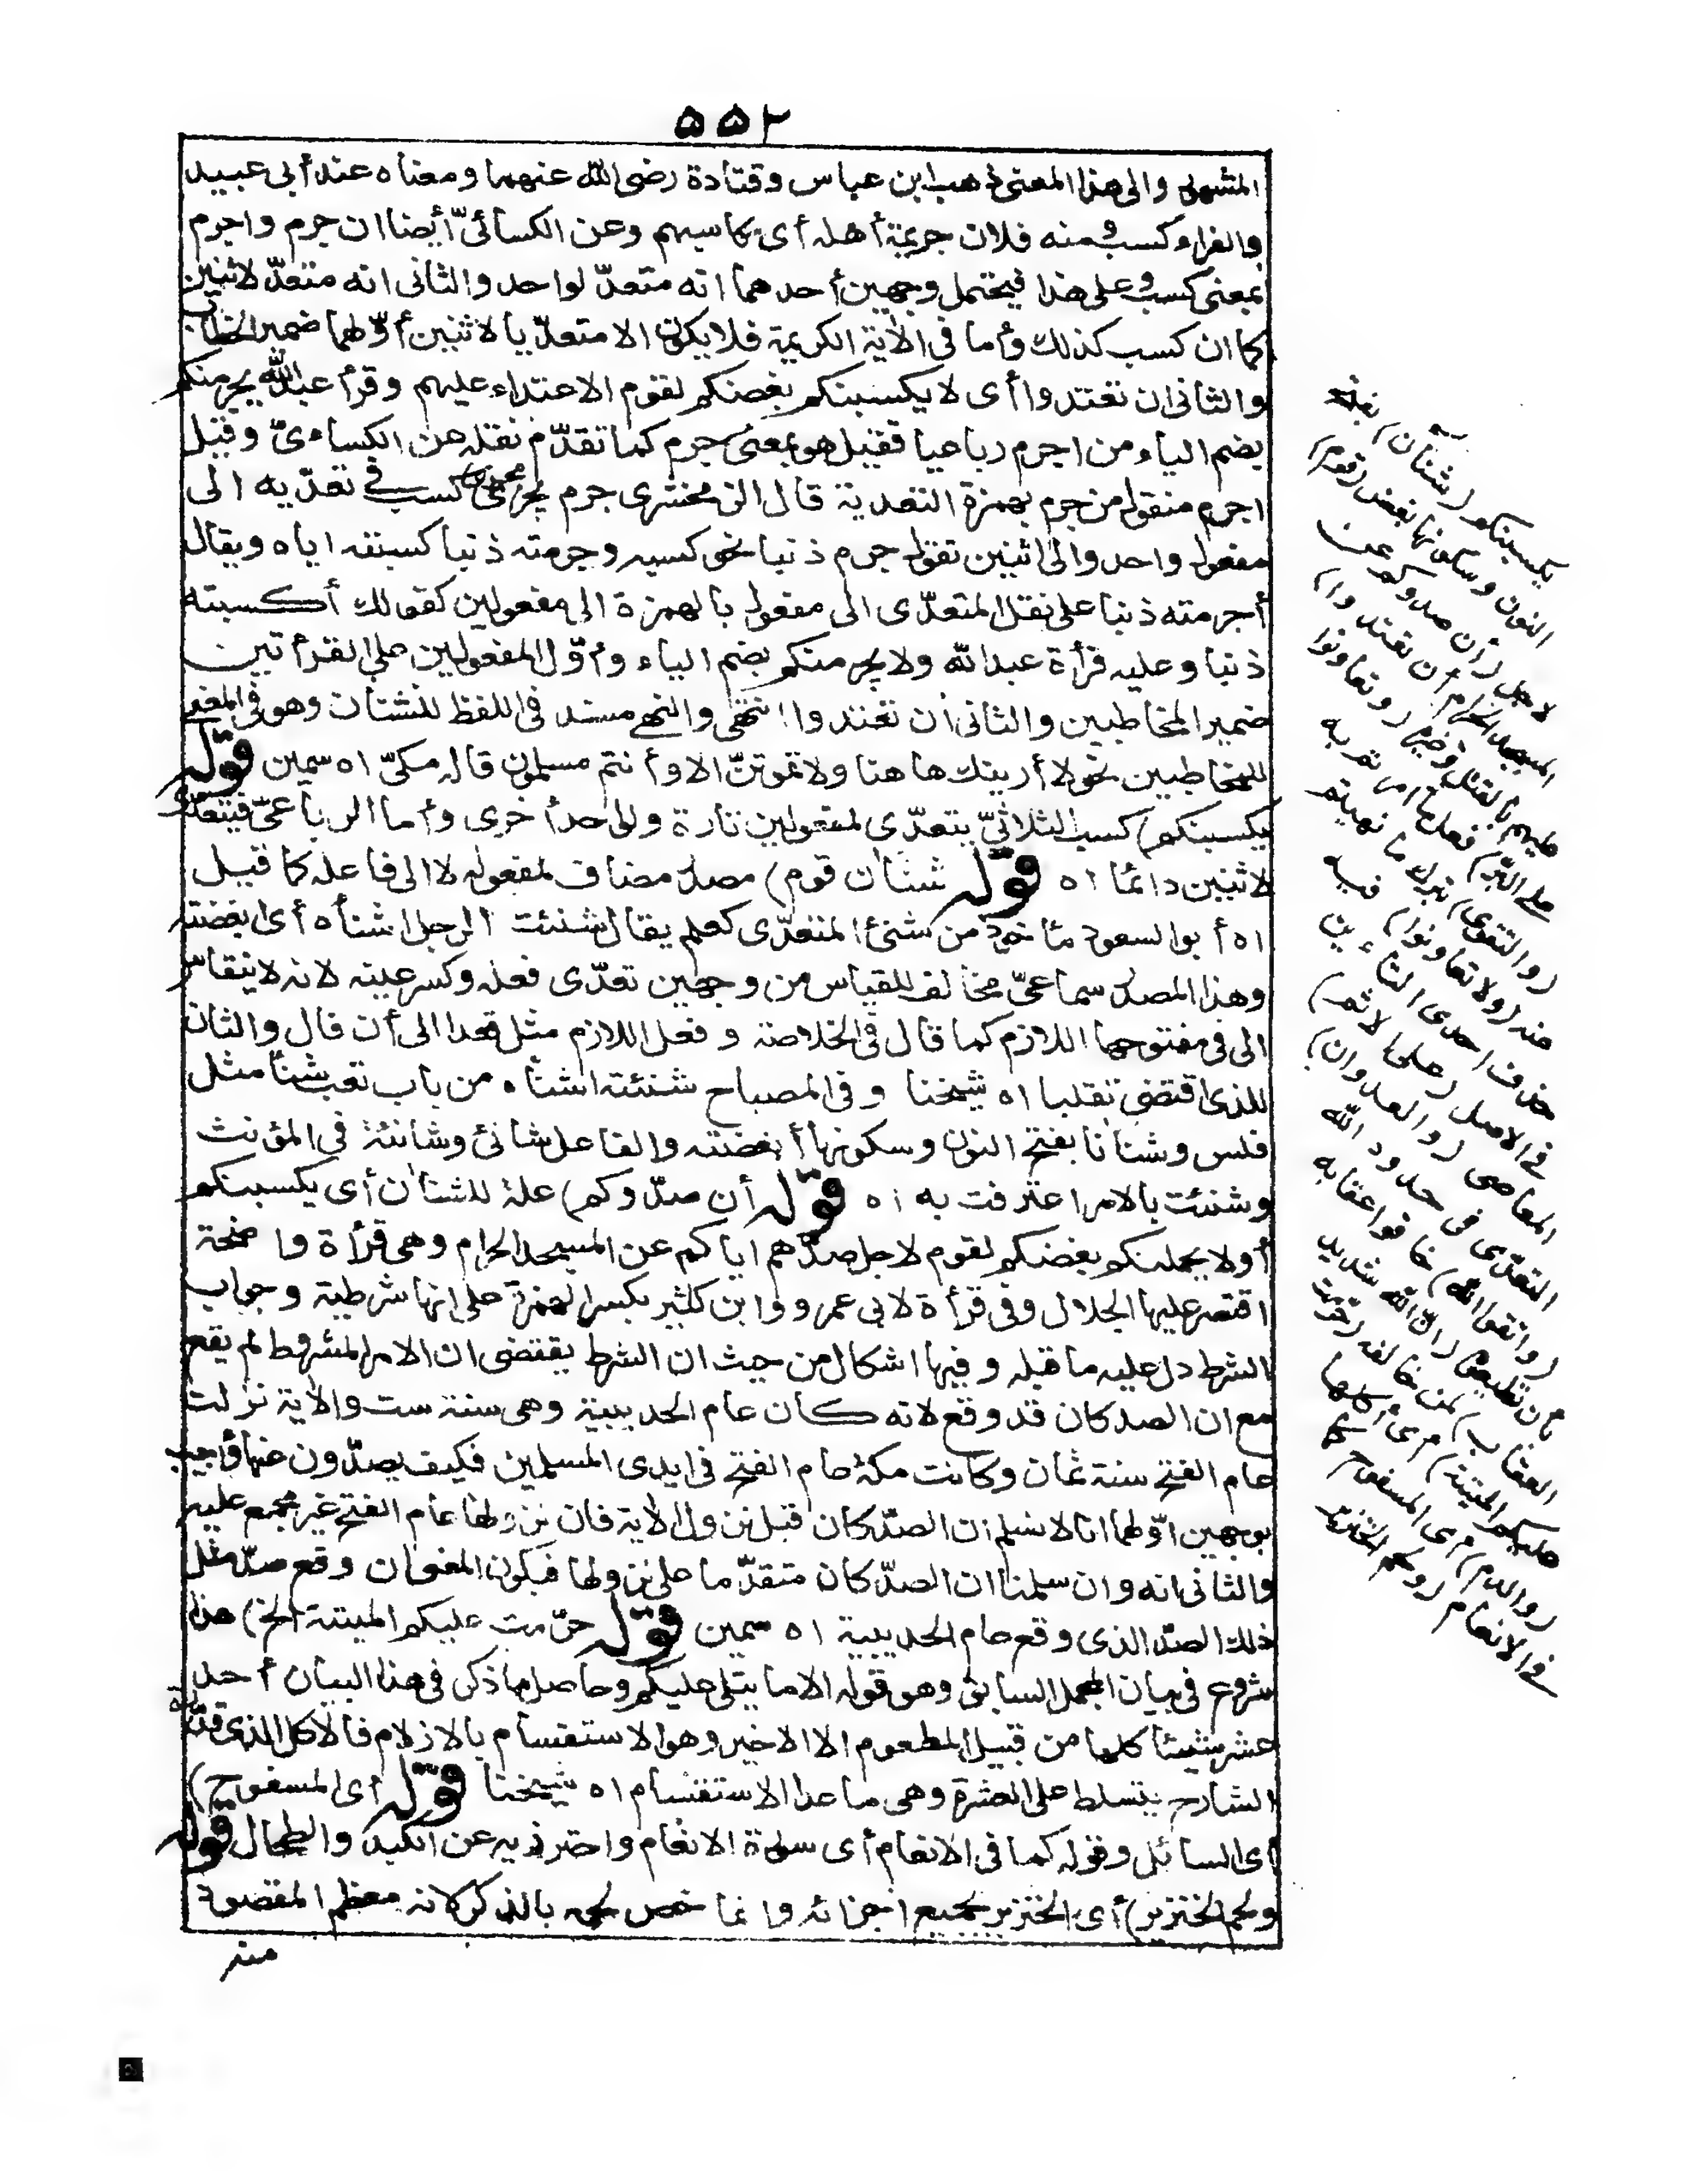 ٥٥٢
المشهور والى هذا المعنى ذهب ابن عباس وقتادة رضى الله عنهما ومعناه عند أبى عبيد
والفراء كسب ومنه فلان جريمة أهله أى كاسبهم وعن الكسائىّ أيضا ان جرم واجرم
بمعنى كسب وعلى هذا فيحتمل وجهين أحدهما انه متعدّ لواحد والثانى انه متعدّ لاثنين
كما ان كسب كذلك وأما فى الآية الكريمة فلا يكون الا متعدّيا لاثنين أوّلهما ضمير الخطاب
والثانى ان تعتدوا أى لا يكسبنكم بغضكم لقوم الاعتداء عليهم وقرأ عبد الله يجرمنكم
بضم الياء من اجرم رباعيا فقيل هو بمعنى جرم كما تقدّم نقله عن الكساءىّ وقيل
اجرم منقول من جرم بهمزة التعدية قال الزمخشرى جرم يجرى مجرى كسب فى تعدّيه الى
مفعول واحد والى اثنين تقول جرم ذنبا نحو كسبه وجرمته ذنبا كسبته اياه ويقال
أجرمته ذنبا على نقل المتعدّى الى مفعول بالهمزة الى مفعولين كقولك أكسبته
ذنبا وعليه قرأة عبد الله ولا يجرمنكم بضم الياء وأوّل المفعولين على القرأتين
ضمير المخاطبين والثانى أن تعتدوا انتهى والنهى مسند فى اللفظ للشنآن وهو فى المعنى
للمخاطبين نحو لا أرينك هاهنا ولا تموتنّ الا وأنتم مسلمون قاله مكىّ اه سمين قوله
يكسبنكم) كسب الثلاثىّ يتعدّى لمفعولين تارة ولواحد أخرى وأما الرباعىّ فيتعدّى
لاثنين دائما اه قوله شنآن قوم) مصدر مضاف لمفعوله لا الى فاعله كما قيل
اه أبو السعود مأخوذ من شنئ المتعدّى كعلم يقال شنئت الرجل اشنأه أى ابغضته
وهذا المصدر سماعىّ مخالف للقياس من وجهين تعدّى فعله وكسر عينه لانه لا ينقاس
الى فى مفتوحها اللازم كما قال فى الخلاصة وفعل اللازم مثل قعدا الى أن قال والثان
للذى اقتضى تقلبا اه شيخنا وفى المصباح شنئته اشنأه من باب تعب شنأ مثل
فلس وشنآنا بفتح النون وسكونها أبغضته والفاعل شانئ وشانئة فى المؤنث
وشنئت بالامر اعترفت به اه قوله أن صدّوكم) علة للشنآن أى يكسبنكم
أو لا يحملنكم بغضكم لقوم لاجل صدّهم اياكم عن المسجد الحرام وهى قرأة واضحة
اقتصر عليها الجلال وفى قرأة لابى عمرو وابن كثير بكسر الهمزة على انها شرطية وجواب
الشرط دل عليه ما قبله وفيها اشكال من حيث ان الشرط يقتضى ان الامر المشروط لم يقع
مع ان الصد كان قد وقع لانه كان عام الحديبية وهى سنة ست والآية نزلت
عام الفتح سنة ثمان وكانت مكة عام الفتح فى ايدى المسلمين فكيف يصدّون عنها وأجيب
بوجهين اوّلهما انا لا نسلم ان الصدّ كان قبل نزول الآية فان نزولها عام الفتح غير مجمع عليه
والثانى انه وان سلمنا ان الصدّ كان متقدّما على نزولها فيكون المعنى ان وقع صدّ مثل
ذلك الصدّ الذى وقع عام الحديبية اه سمين قوله حرّمت عليكم الميتة الخ) هذا
شروع فى بيان المجمل السابق وهو قوله الا ما يتلى عليكم وحاصل ما ذكر فى هذا البيان أحد
عشر شيئا كلها من قبيل المطعوم الا الاخير وهو الاستقسام بالازلام فالاكل الذى قدّره
الشارح يتسلط على العشرة وهى ما عدا الاستقسام اه شيخنا قوله أى المسفوح)
أى السائل وقوله كما فى الانعام أى سورة الانعام واحترز به عن الكبد والطحال قوله
ولحم الخنزير) أى الخنزير بجميع اجزائه وانما خص لحمه بالذكر لانه معظم المقصود
منه
يكسبنكم (شنآن) بفتح
النون وسكونها بغض (قوم)
لاجل (أن صدوكم عن
المسجد الحرام أن تعتدوا)
عليهم بالقتل وغيره (وتعاونوا
على البرّ) فعل ما امرتم به
(والتقوى) بترك ما نهيتم
عنه (ولا تعاونوا) فيه
حذف احدى التاءين
فى الاصل (على الاثم)
المعاصى (والعدوان)
التعدّى فى حدود الله
(واتقوا الله) خافوا عقابه
بأن تطيعوه (انّ الله شديد
العقاب) لمن خالفه (حرّمت
عليكم الميتة) أى أكلها
(والدم) أى المسفوح كما
فى الانعام (ولحم الخنزير